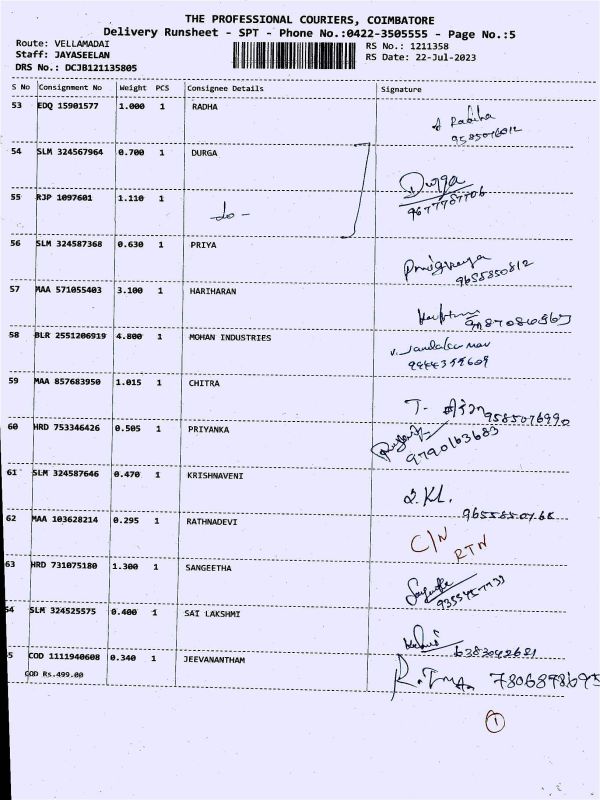 THE PROFESSIONAL COURIERS, COIMBATORE
Delivery Runsheet - SPT - Phone No.:0422-3505555 - Page No.:5
Route: VELLAMADAI
Staff: JAYASEELAN
DRS No.: DCJB121135805
RS No.: 1211358
RS Date: 22-Jul-2023
S No Consignment No Weight PCS Consignee Details Signature
53 EDQ 15901577 1.000 1 RADHA
54 SLM 324567964 0.700 1 DURGA
Durga
9677787706
55 RJP 1097601 1.110 1 -do-
56 SLM 324587368 0.630 1 PRIYA
9655850812
57 MAA 571055403 3.100 1 HARIHARAN
58 BLR 2551206919 4.800 1 MOHAN INDUSTRIES
59 MAA 857683950 1.015 1 CHITRA
9585076990
60 HRD 753346426 0.505 1 PRIYANKA
9790163683
61 SLM 324587646 0.470 1 KRISHNAVENI
62 MAA 103628214 0.295 1 RATHNADEVI
C/N
RTN
63 HRD 731075180 1.300 1 SANGEETHA
54 SLM 324525575 0.400 1 SAI LAKSHMI
5 COD 1111940608 0.340 1 JEEVANANTHAM
COD Rs.499.00
7806898695
1